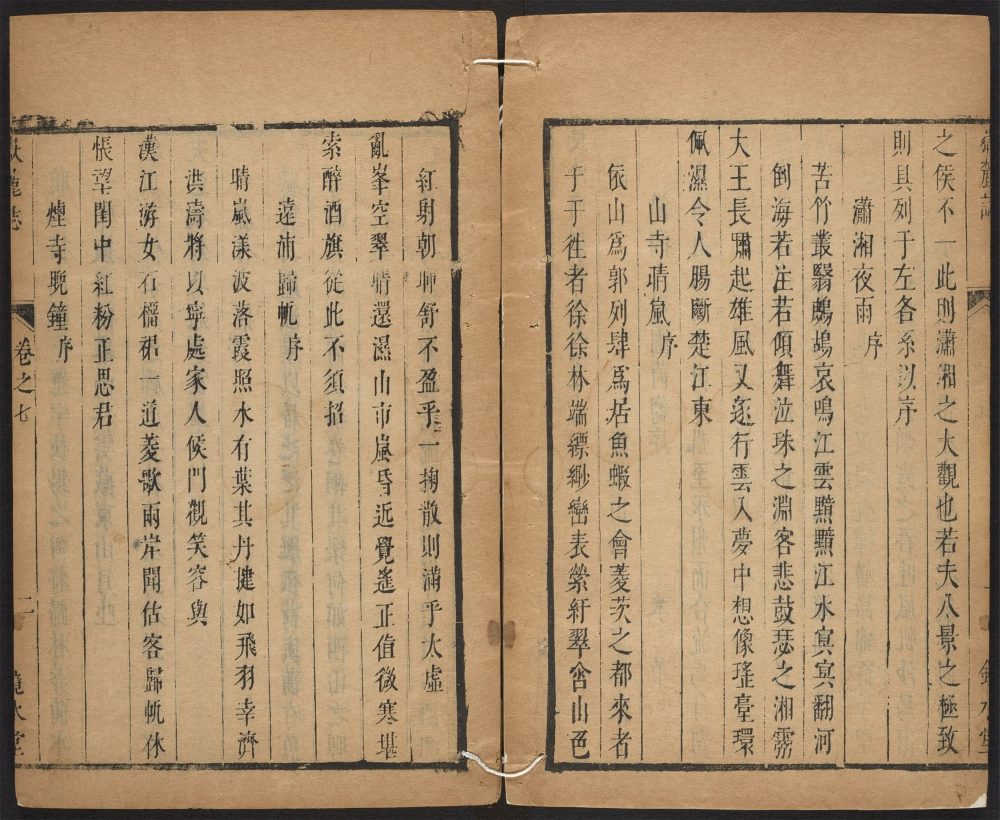 嶽麓誌
鏡水堂
之侯不一此則瀟湘之大觀也若夫八景之極致
則具列于左各系以序
瀟湘夜雨 序
苦竹叢翳鷓鴣哀鳴江雲黯黯江水冥冥翻河
倒海若注若傾舞泣珠之淵客悲鼓瑟之湘靈
大王長嘯起雄風又逐行雲入夢中想像瑤臺環
佩濕令人腸斷楚江東
山寺晴嵐 序
依山為郭列肆為居魚蝦之會菱芡之都來者
于于徃者徐徐林端縹緲巒表縈紆翠含山色
紅射朝 舒不盈乎一掬散則滿乎太虛
亂峯空翠晴還濕山市嵐昏近覺遙正值微寒堪
索醉酒旗從此不須招
遠浦歸帆 序
晴嵐漾波落霞照水有葉其丹健如飛羽幸濟
洪濤將以寧處家人候門觀笑容與
漢江游女石榴裙一道菱歌兩岸聞估客歸帆休
悵望閨中紅粉正思君
煙寺晚鐘 序
嶽麓誌
卷之七
二
鏡水堂